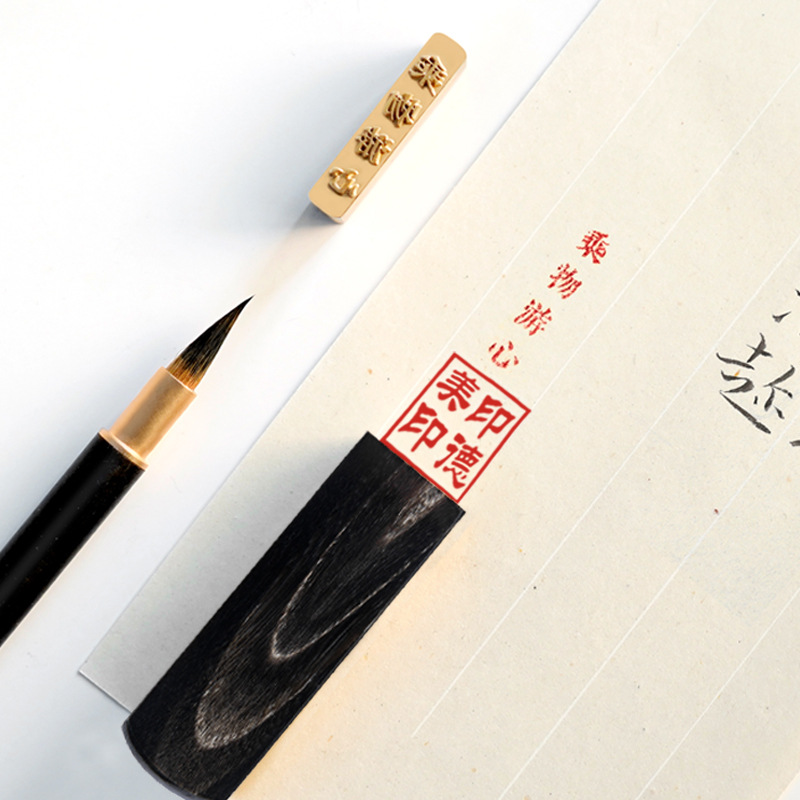 乘物游心
乘物游心
印德
美印